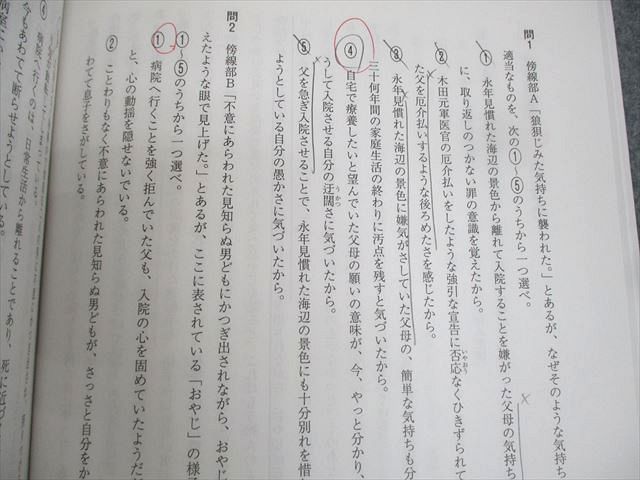 問1 傍線部A「狼狽じみた気持ちに襲われた。」とあるが、なぜそのような気持ち
適当なものを、次の①〜⑤のうちから一つ選べ。
① 永年見慣れた海辺の景色から離れて入院することを嫌がった父母の気持ち
に、取り返しのつかない罪の意識を覚えたから。
② 木田元軍医官の厄介払いをしたような強引な宣告に否応なくひきずられて
いやおう
た父を厄介払いするような後ろめたさを感じたから。
③ 永年見慣れた海辺の景色に嫌気がさしていた父母の、簡単な気持ちも分
三十何年間の家庭生活の終わりに汚点を残すと気づいたから。
④ 自宅で療養したいと望んでいた父母の願いの意味が、今、やっと分かり、
うして入院させる自分の迂闊さに気づいたから。
うかつ
⑤ 父を急ぎ入院させることで、永年見慣れた海辺の景色にも十分別れを惜
ようとしている自分の愚かさに気づいたから。
問2 傍線部B「不意にあらわれた見知らぬ男どもにかつぎ出されながら、おやじ
えたような眼で見上げた。」とあるが、ここに表されている「おやじ」の様
①〜⑤のうちから一つ選べ。
① 病院へ行くことを強く拒んでいた父も、入院の心を固めていたようだ
と、心の動揺を隠せないでいる。
② ことわりもなく不意にあらわれた見知らぬ男どもが、さっさと自分をか
わてて息子をさがしている。
病院へ行くのは、日常生活から離れることであり、死に近づ
今もあわてて断らせようとしている。
④